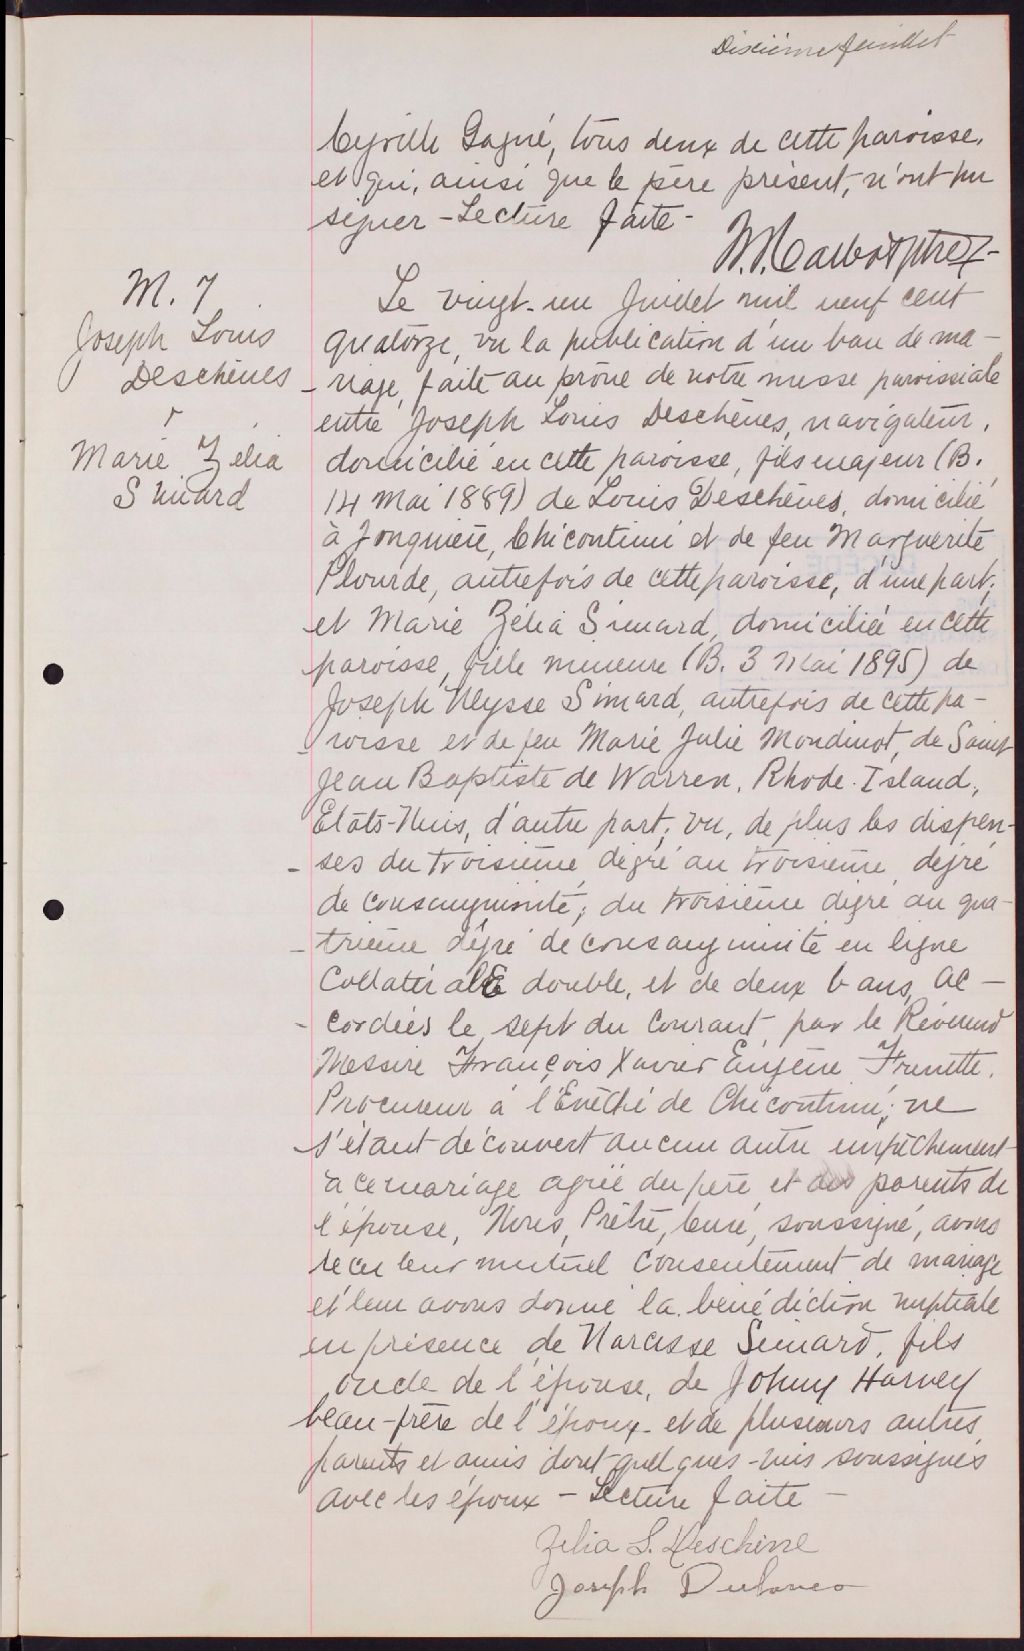 Dixième feuillet
Cyrille Gagné, tous deux de cette paroisse,
et qui, ainsi que le père présent, n'ont pu
signer - Lecture faite -
M. 7
Joseph Louis
Deschênes
&
Marie Zélia
Simard
Le vingt-un Juillet mil neuf cent
quatorze, vu la publication d'un ban de ma-
-riage, faite au prône de notre messe paroissiale
entre Joseph Louis Deschênes, navigateur,
domicilié en cette paroisse, fils majeur (B.
14 Mai 1889) de Louis Deschênes, domicilié
à Jonquière, Chicoutimi et de feu Marguerite
Plourde, autrefois de cette paroisse, d'une part;
et Marie Zélia Simard, domiciliée en cette
paroisse, fille mineure (B. 3 Mai 1895) de
Joseph Ulysse Simard, autrefois de cette pa-
-roisse et de feu Marie Julie Mondinot, de Saint
Jean Baptiste de Warren, Rhode-Island,
Etats-Unis, d'autre part; vu, de plus les dispen-
-ses du troisième dégré au troisième dégré
de consanguinité; du troisième dégré au qua-
-trième dégré de consanguinité en ligne
Collatérale double, et de deux bans, ac-
-cordées le sept du courant par le Révérend
Messire François Xavier Eugène Frenette,
Procureur à l'Evêché de Chicoutimi; ne
s'étant découvert aucun autre empêchement
à ce mariage agréé du père et des parents de
l'épouse, Nous, Prêtre, Curé, soussigné, avons
recu leur mutuel consentement de mariage
et leur avons donné la bénédiction nuptiale
en présence de Narcisse Simard, fils
oncle de l'épouse, de Johny Harvey
beau-frère de l'époux et de plusieurs autres
parents et amis dont quelques-uns soussignés
avec les époux - Lecture faite -
Zelia S. Deschene
Joseph